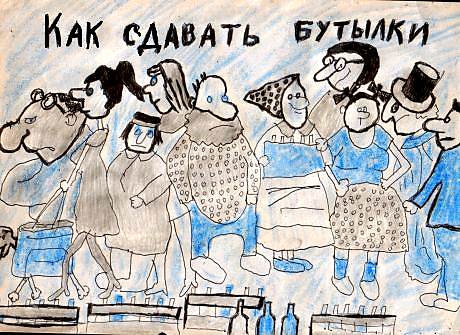 Как сдавать бутылки